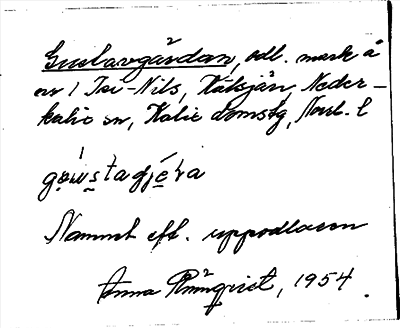 Gustavgärdan, odl. mark å
en 1 Isi-Nils, Kälsjärv, Neder-
kalix sn, Kalix domsg, Norrb. l
gowstagjæɾa
Namnet eft. uppodlaren
Anna Rönnqvist, 1954.